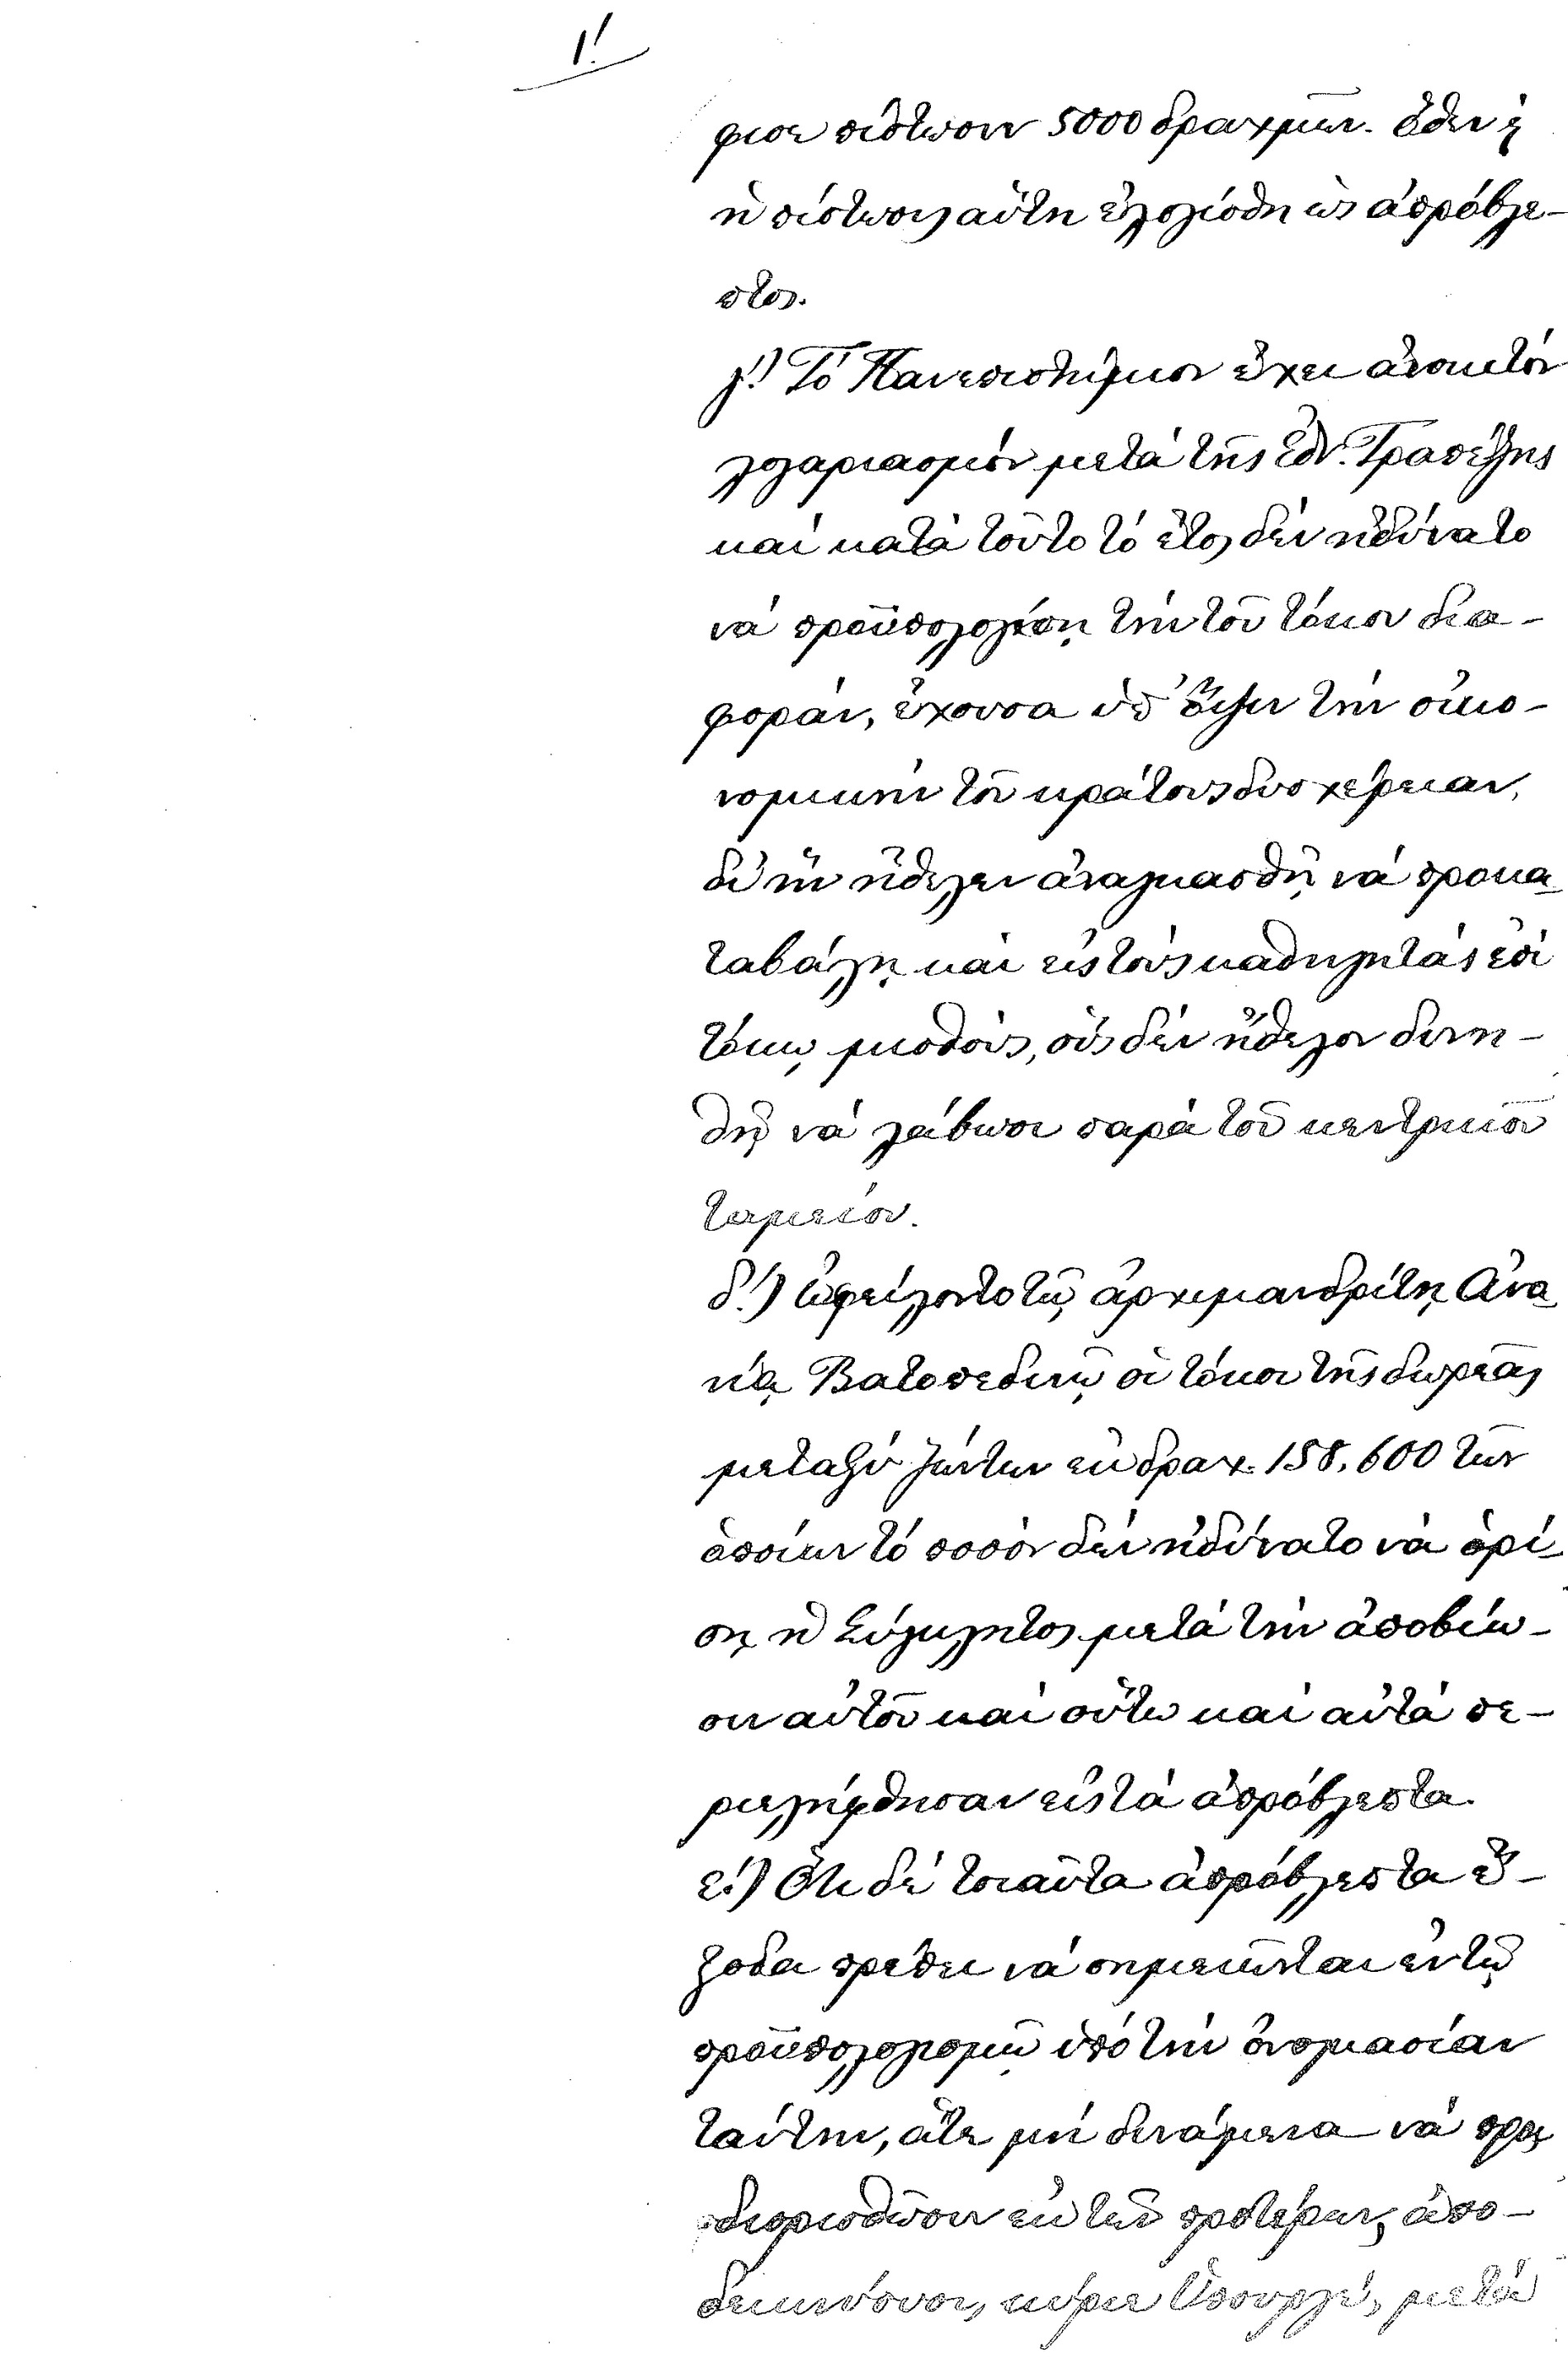 1!
φισε πίστωσιν 5000 δραχμῶν. ὅθεν ἡ
ἡ πίστωσις αὕτη ἐλογίσθη ὡς ἀπρόβλε-
πτος.
γ!) Τό Πανεπιστήμιον ἔχει ἀνοικτόν
λογαριασμόν μετά τῆς Ἐθν. Τραπέζης
καί κατά τοῦτο τό ἔτος δέν ἠδύνατο
νά προϋπολογίσῃ τήν τοῦ τόκου δια-
φοράν, ἔχουσα ὑπ' ὄψιν τήν οἰκο-
νομικήν τοῦ κράτους δυσχέρειαν,
δι' ἥν ἤθελεν ἀναγκασθῇ νά προκα-
ταβάλῃ καί εἰς τούς καθηγητάς ἐπί
τόκῳ μισθούς, οὕς δέν ἤθελον δυνη-
θῇ νά λάβωσι παρά τοῦ κεντρικοῦ
ταμείου.
δ!) ὠφείλοντο τῷ ἀρχιμανδρίτῃ Ἀνα-
νίᾳ Βατοπεδινῷ οἱ τόκοι τῆς δωρεᾶς
μεταξύ ζώντων ἐκ δραχ. 158,600 τῶν
ὁποίων τό ποσόν δέν ἠδύνατο νά ὁρί-
σῃ ἡ Σύγκλητος μετά τήν ἀποβίω-
σιν αὐτοῦ καί οὕτω καί αὐτά πε-
ριελήφθησαν εἰς τά ἀπρόβλεπτα.
ε!) Ὅτι δέ τοιαῦτα ἀπρόβλεπτα ἔ-
ξοδα πρέπει νά σημειῶνται ἐν τῷ
προϋπολογισμῷ ὑπό τήν ὀνομασίαν
ταύτην, ἅτε μή δυνάμενα νά προς
διορισθῶσιν ἐκ τῶν προτέρων, ἀπο-
δεικνύουσι, κύριε Ὑπουργέ, μετά